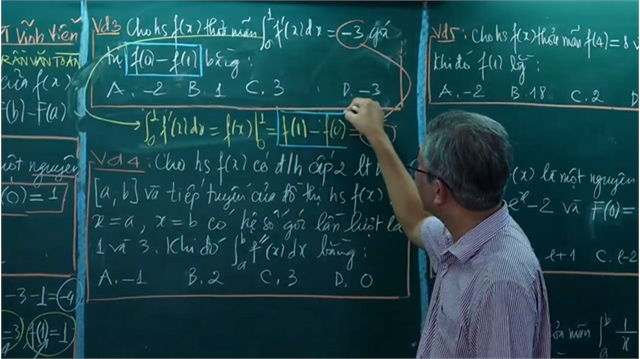 Ĩ Vĩnh Viễn
TRẦN VĂN TOÀN
của f(x)
F(b) - F(a)
một nguyên
(0) = 1
-3-1=-4
f(1)=1
Vd3 Cho hs f(x) thỏa mãn ∫₀¹ f'(x)dx = -3, giá
trị f(0) - f(1) bằng:
A. -2 B. 1 C. 3 D. -3
∫₀¹ f'(x)dx = f(x)|₀¹ = f(1) - f(0) =
Vd4: Cho hs f(x) có đ/h cấp 2 lt
[a, b] và tiếp tuyến của đồ thị hs f(x)
x = a, x = b có hệ số góc lần lượt là
1 và 3. Khi đó ∫ₐᵇ f''(x)dx bằng:
A. -1 B. 2 C. 3 D. 0
Vd5: Cho hs f(x) thỏa mãn f(4) = 8
khi đó f(1) bằng:
A. -2 B. 18 C. 2 D
(x) là một nguyên
eˣ - 2 và F(0) =
e+1 C. e-2
mãn ∫ₐᵇ 1/x